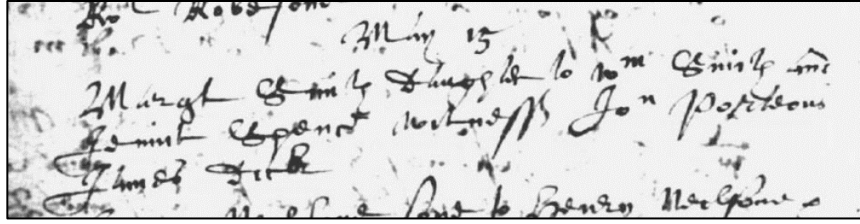 Robersone
May 15
Margt Smith Daughter to Wm Smith and
Jennit Spence witness Jon Porteous
James Dick
sone to Henry Neilsone